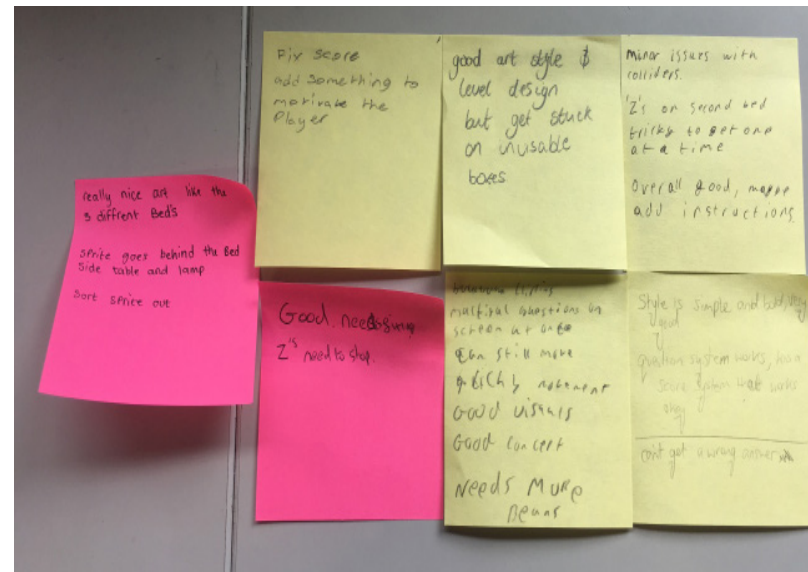 really nice art like the
3 diffrent Bed's
sprite goes behind the Bed
side table and lamp
Sort sprite out
Fix score
add something to
motivate the
Player
good art style &
level design
but get stuck
on invisable
boxes
minor issues with
colliders.
'Z's on second bed
tricky to get one
at a time
Overall good, maybe
add instructions
Good. needs
Z's need to stop.
multipal questions on
screen at once
Can still move
glitchy movement
Good visuals
Good concept
Needs More
Beans
Style is simple and bold, very
good
question system works,
score system works
okay
cant get a wrong answer